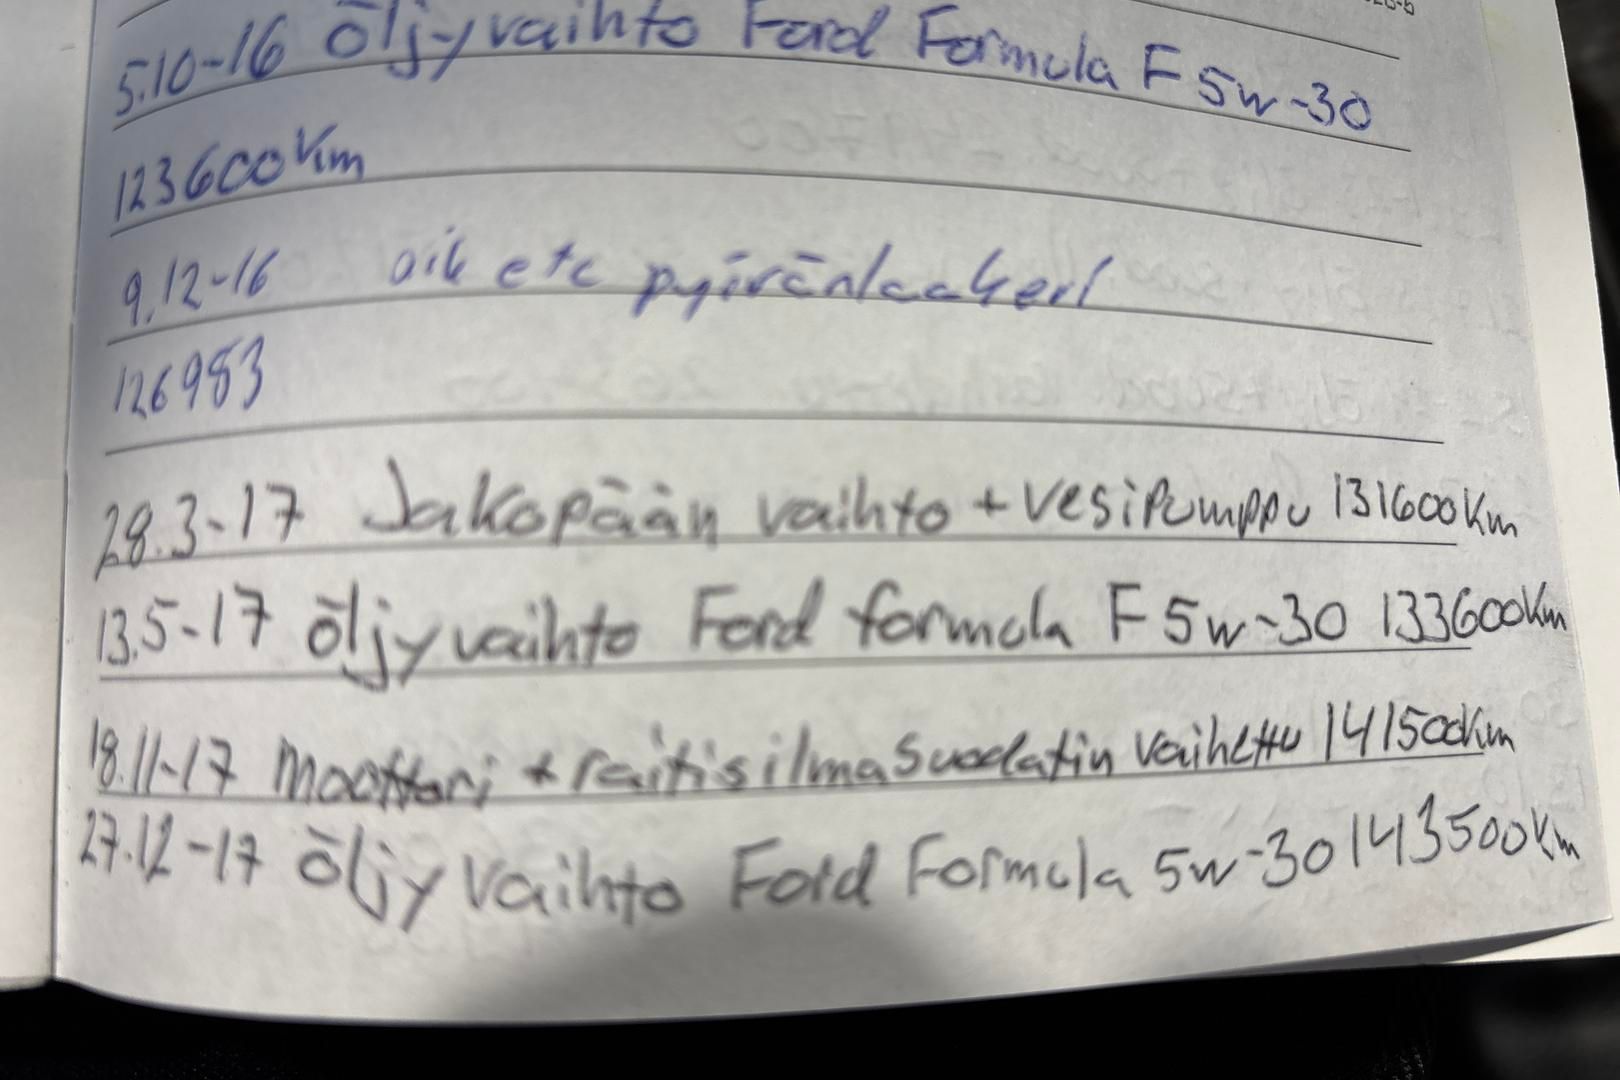 5.10-16 Öljyvaihto Ford Formula F 5w-30
123600Km
9.12-16 oik etc pyöränlaakeri
126983
28.3-17 Jakopään vaihto + vesipumppu 131600Km
13.5-17 öljyvaihto Ford formula F 5w-30 133600Km
18.11-17 Moottori + raitisilmasuodatin vaihettu 141500Km
27.12-17 öljy vaihto Ford Formula 5w-30 143500Km